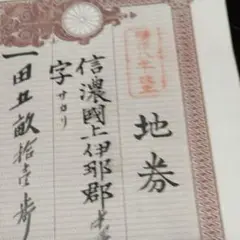 地券
信濃國上伊那郡
字サカリ
一田五畝拾壹歩